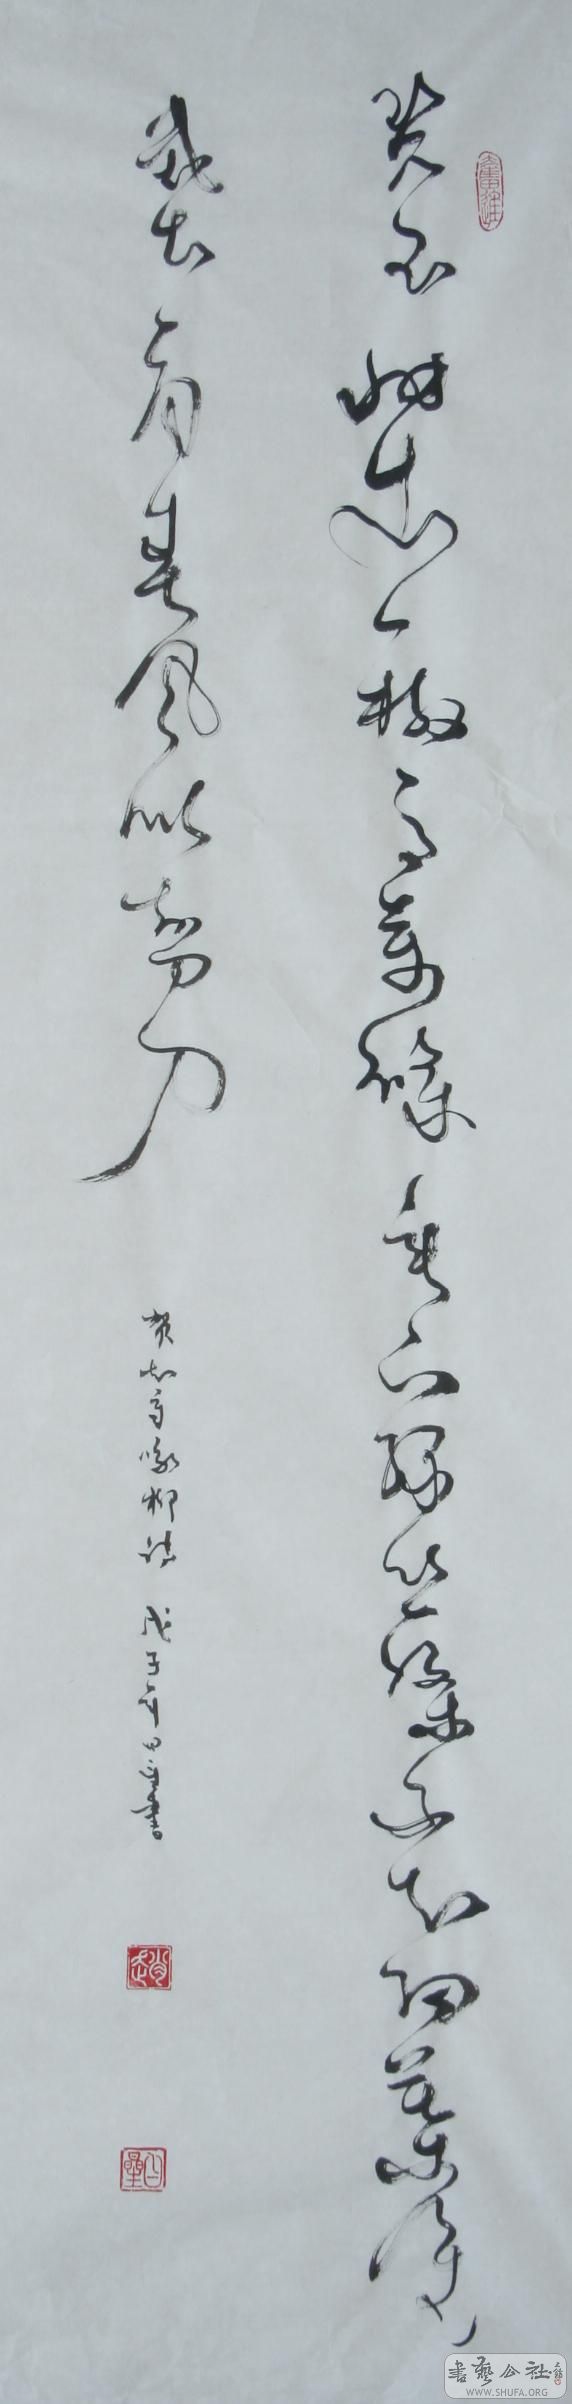 碧玉妝成一樹高萬條垂下綠絲絛不知細葉誰
裁出二月春風似剪刀
賀知章詠柳詩 戊子年 書
趙
書藝公社
WWW.SHUFA.ORG